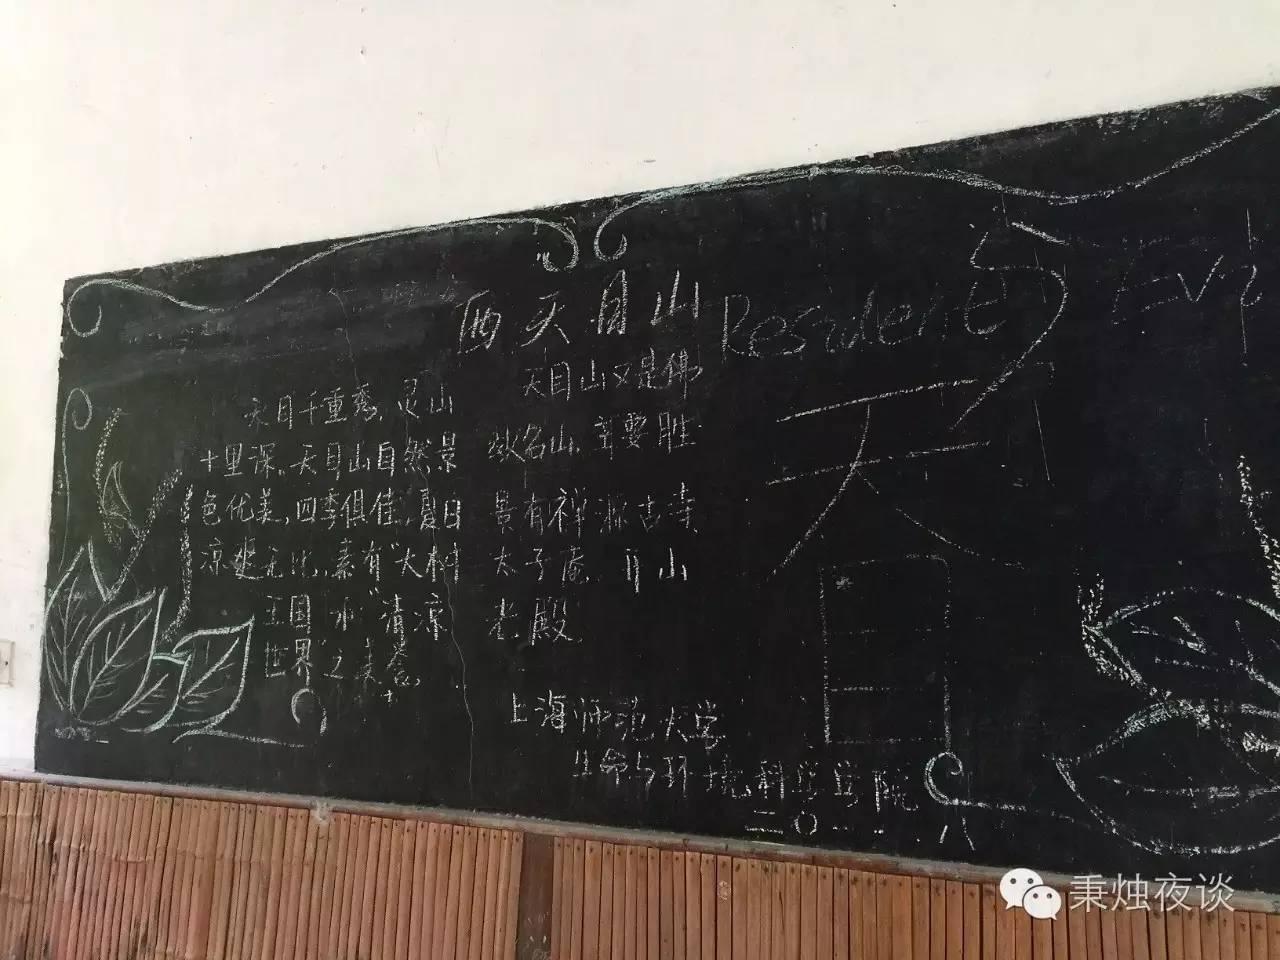 西天目山
天目千重秀,灵山
十里深。天目山自然景
色优美,四季俱佳,夏日
凉爽无比,素有"大树
王国"和"清凉
世界"之美誉。
天目山又是佛
教名山,主要胜
景有禅源古寺
太子庵、开山
老殿
上海师范大学
生命与环境科学学院
二〇一一.八
Resident Evi
天
目
秉烛夜谈